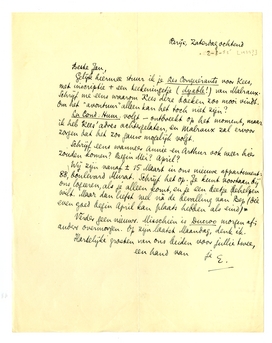 Parijs, Zaterdagochtend
Beste Jan,
Gelijk hiermee stuur ik je Les Conquérants voor Kees,
met inscriptie + een teekeningetje (dyable!) van Malraux.
Schrijf me eens waarom Kees deze boeken zoo mooi vindt.
Om het "avontuur" alleen kan het toch niet zijn?
La Cond. Hum. volgt - ontbreekt op het moment, maar
ik heb Kees' adres achtergelaten, en Malraux zal ervoor
zorgen dat het zoo gauw mogelijk volgt.
Schrijf eens wanneer Annie en Arthur ook weer hier
zouden komen? Begin Mei? April?
Wij zijn vanaf ± 15 Maart in ons nieuwe appartement:
88, boulevard Murat. Schrijf het op. Je kunt voortaan bij
ons logeeren, als je alleen komt, en je een beetje behelpen
wilt. Maar dan liefst wel na de bevalling van Bep, (die
even goed begin April kan plaats hebben als eind).
Verder geen nieuws. Misschien is Querog morgen of
andere overmorgen. Of zijn laatst Maandag, denk ik.
Hartelijke groeten van ons beiden voor jullie twee,
een hand van
je E.